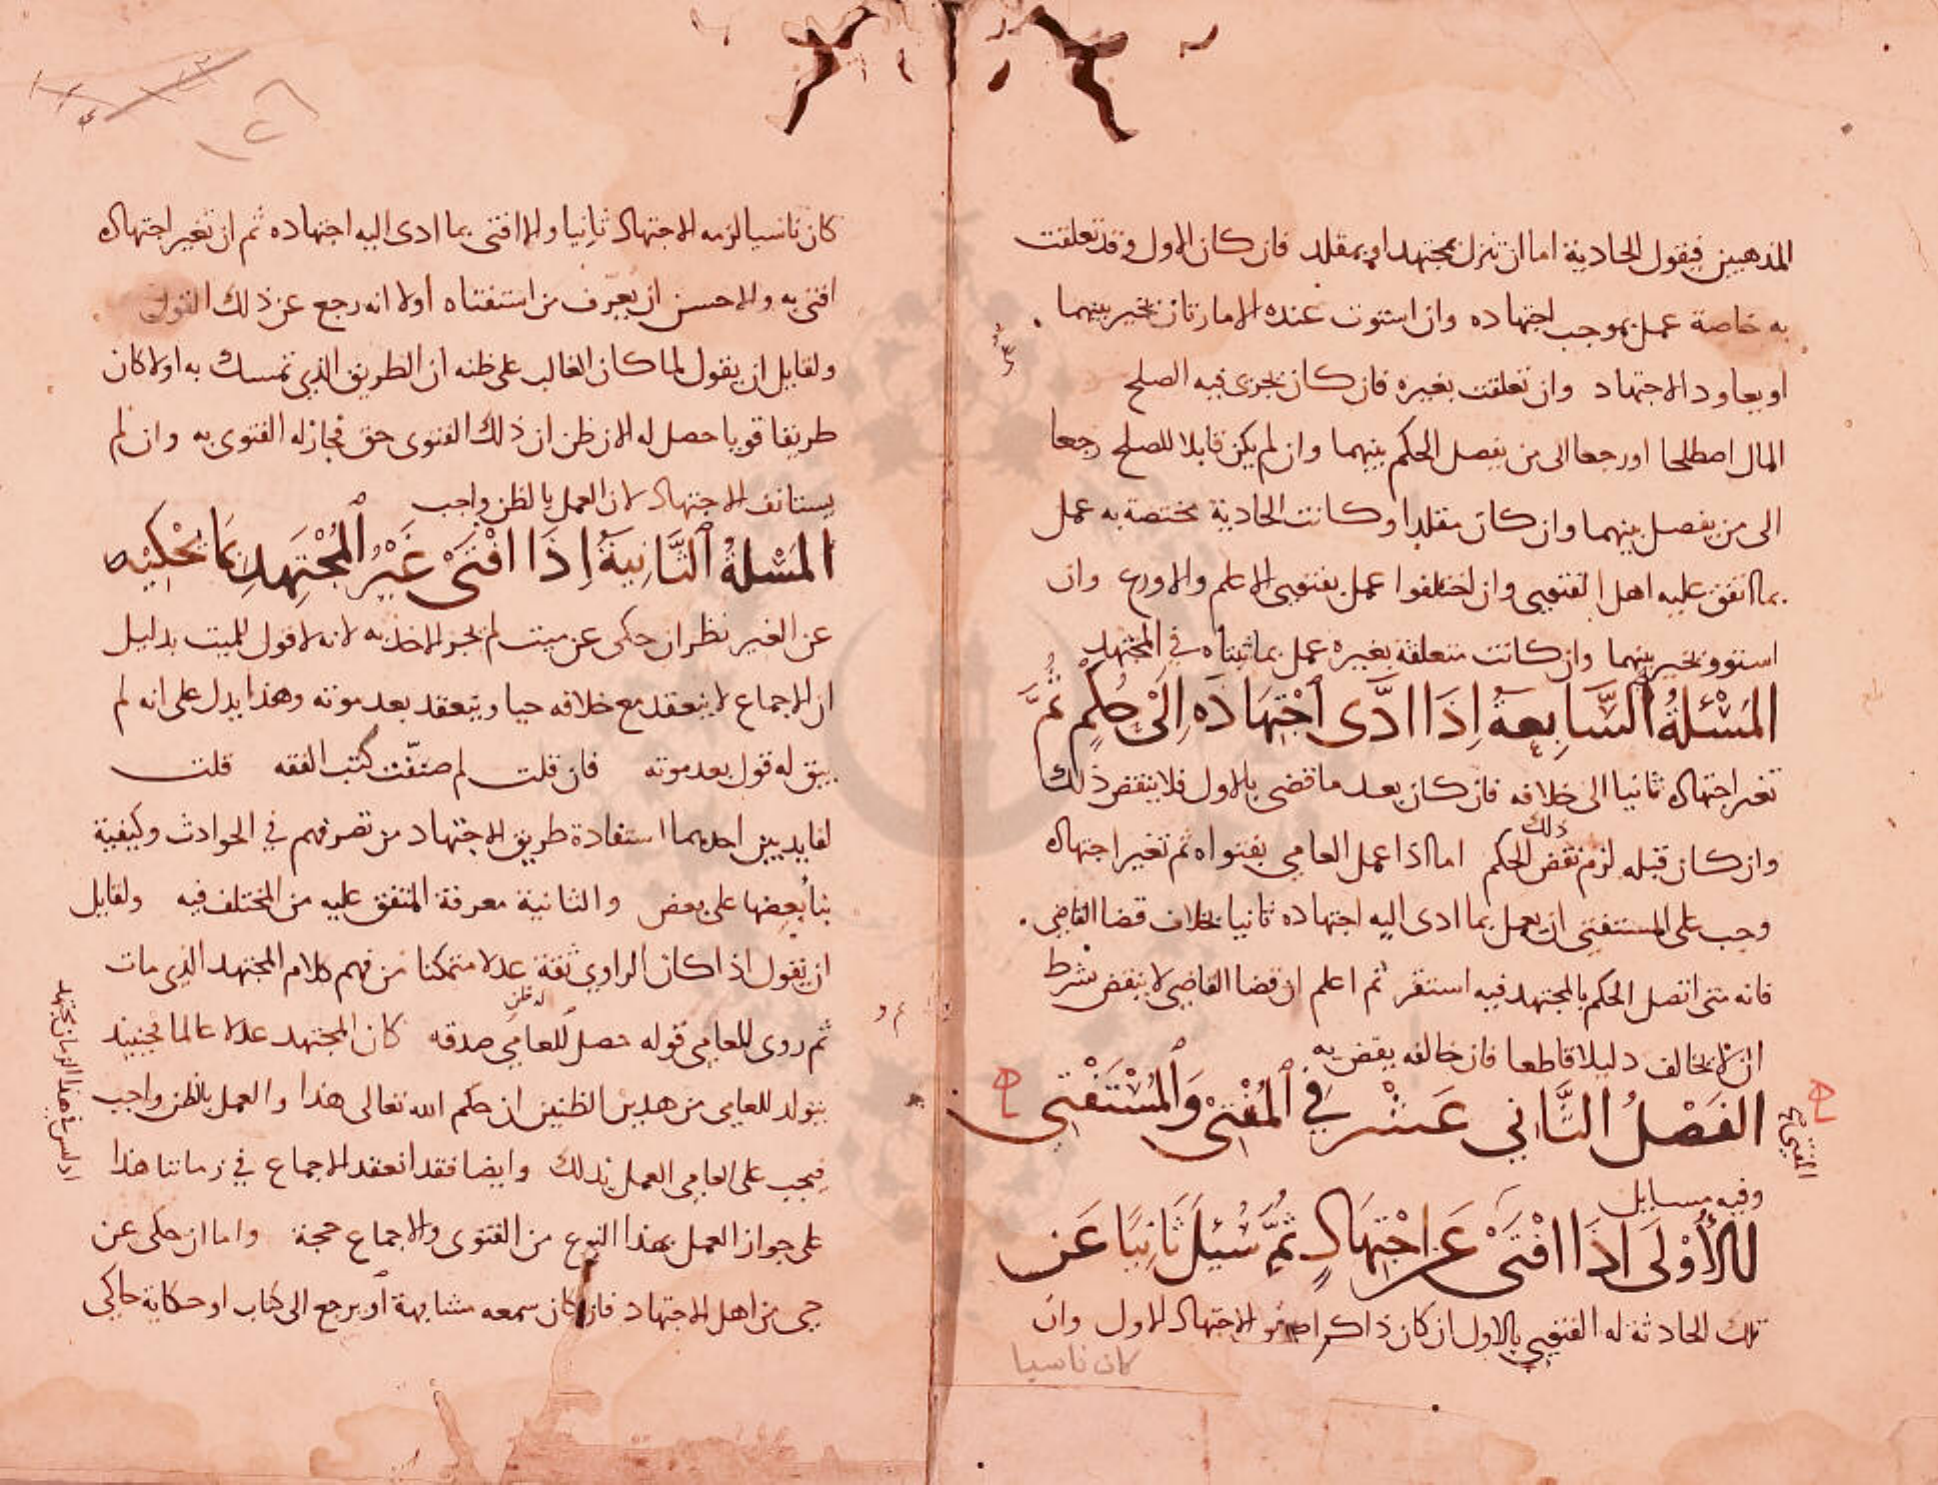 المذهبين فيقول الحادثة اما ان تنزل بمجتهد او بمقلد فان كان الاول وقد تعلقت
به خاصة عمل بموجب اجتهاده وان استوت عنده الامارتان تخير بينهما
او يعاود الاجتهاد وان تعلقت بغيره فان كان يجزى فيه الصلح
المال اصطلحا او رجعا الى من يفصل الحكم بينهما وان لم يكن قابلا للصلح رجعا
الى من يفصل بينهما وان كان مقلدا وكانت الحادثة مختصة به عمل
بما اتفق عليه اهل الفتوى وان اختلفوا عمل بفتوى الاعلم والاورع وان
استووا تخير بينهما وان كانت متعلقة بغيره عمل بما ثبتاه في المجتهد
المَسْئلةُ السَّابِعةُ اِذَا ادَّى اجْتِهَادَه اِلىْ حُكِمٍ ثُمَّ
تغير اجتهاده ثانيا الى خلافه فان كان بعد ما قضى بالاول فلا ينقض ذلك
وان كان قبله لزم نقض ذلك الحكم اما اذا عمل العامي بفتواه ثم تغير اجتهاده
وجب على المستفتي ان يعمل بما ادى اليه اجتهاده ثانيا بخلاف قضا القاضي .
فانه متى اتصل الحكم بالمجتهد فيه استقر ثم اعلم ان قضا القاضي لا ينقض بشرط
ان لا يخالف دليلا قاطعا فان خالفه ينقض به
الفَصْلُ الثَّاني عَشْر فِي المُفْتِىْ وَالمُسْتَفْتِى
المفتي
وفيه مسايل
الأُوْلَى اِذَا افْتَىْ عَن اجْتِهَادٍ ثُمَّ سُئِلَ ثَانِيًا عَن
تلك الحادثة له الفتوى بالاول ان كان ذاكرا الاجتهاد الاول وان
كان ناسيا
كان ناسيا لزمه الاجتهاد ثانيا والا افتى بما ادى اليه اجتهاده ثم ان تغير اجتهاده
افتى به والاحسن ان يعرّف من استفتاه اولا انه رجع عن ذلك القول
ولقايل ان يقول لما كان الغالب على ظنه ان الطريق الذي تمسك به اولا كان
طريقا قويا حصل له الان ظن ان ذلك الفتوى حق فجاز له الفتوى به وان لم
يستانف الاجتهاد لان العمل بالظن واجب
المَسْلةُ الثَّانِيَةُ اِذَا افْتَىْ غَيْرُ المُجْتَهِدِ بِمَا يَحْكِيْه
عن الغير نظر ان حكى عن ميت لم يجز الاخذ به لانه لا قول للميت بدليل
ان الاجماع لا ينعقد مع خلافه حيا وينعقد بعد موته وهذا يدل على انه لم
يبق له قول بعد موته فان قلت لم صنّفت كتب الفقه قلت
لفايدتين احدهما استفادة طريق الاجتهاد من تصرفهم في الحوادث وكيفية
بنا بعضها على بعض والثانية معرفة المتفق عليه من المختلف فيه ولقايل
ان يقول اذا كان الراوي ثقة عدلا متمكنا من فهم كلام المجتهد الذي مات
ثم روى للعامي قوله حصل للعامي له ظن صدقه كان المجتهد عدلا عالما فحينيذ
يتولد للعامي من هذين الظنين ان حكم الله تعالى هذا والعمل بالظن واجب
فيجب على العامي العمل بذلك وايضا فقد انعقد الاجماع في زماننا هذا
اذ ليس في هذا الزمان مجتهد
على جواز العمل بهذا النوع من الفتوى والاجماع حجة واما ان حكى عن
حى من اهل الاجتهاد فان كان سمعه مشابهة أو يرجع الى كتاب او حكاية حاكى